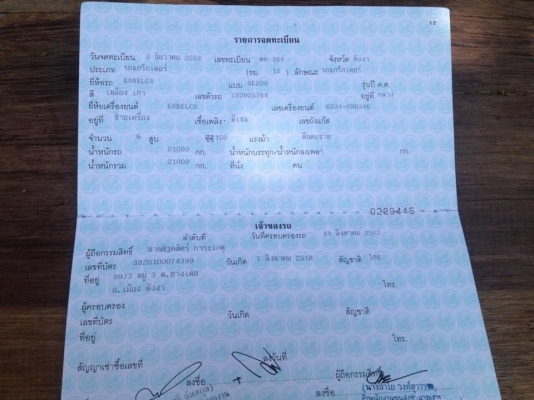 12
รายการจดทะเบียน
วันจดทะเบียน 2 ธันวาคม 2553 เลขทะเบียน ตค 164 จังหวัด พังงา
ประเภท รถแทรกเตอร์ (รย. 13 ) ลักษณะ รถแทรกเตอร์
ยี่ห้อรถ KOBELCO แบบ SK200 รุ่นปี ค.ศ.
สี เหลือง เทา เลขตัวรถ อยู่ที่ กลาง
ยี่ห้อเครื่องยนต์ KOBELCO เลขเครื่องยนต์ 6D34-096346
อยู่ที่ เชื้อเพลิง ดีเซล เลขถังแก๊ส
จำนวน 6 สูบ ซีซี 150 แรงม้า ตีนตะขาบ
น้ำหนักรถ 21000 กก. น้ำหนักบรรทุก/น้ำหนักลงเพลา กก.
น้ำหนักรวม 21000 กก. ที่นั่ง คน
0229445
เจ้าของรถ
ลำดับที่ วันที่ครอบครองรถ 13 สิงหาคม 2557
ผู้ถือกรรมสิทธิ์
เลขที่บัตร 3820100074399 วันเกิด 7 สิงหาคม 2518 สัญชาติ ไทย
ที่อยู่ 99/3 หมู่ 3 ต.บางเตย โทร.
อ.เมือง พังงา
ผู้ครอบครอง
เลขที่บัตร วันเกิด สัญชาติ
ที่อยู่ โทร.
สัญญาเช่าซื้อเลขที่ ลงวันที่
ลงชื่อ ผู้ถือกรรมสิทธิ์
ลงชื่อ